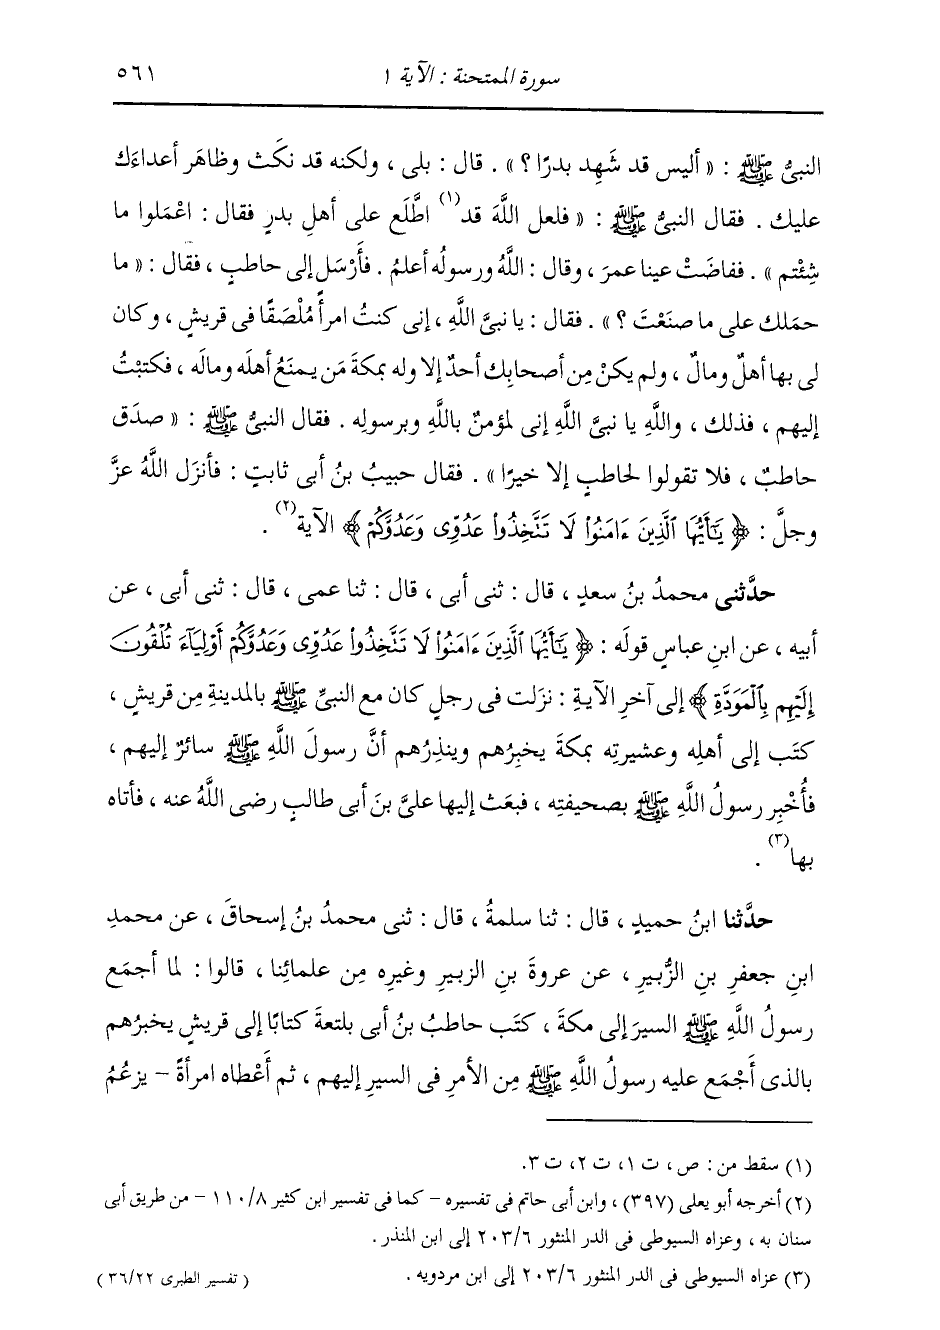 سورة الممتحنة : الآية ١ ٥٦١
النبىُّ ﷺ : « أليس قد شَهِد بدرًا ؟ » . قال : بلى ، ولكنه قد نكَث وظاهَر أعداءَك
عليك . فقال النبىُّ ﷺ : « فلعل اللَّهَ قد(١) اطَّلَع على أهلِ بدرٍ فقال : اعْمَلوا ما
شِئْتم » . ففاضَتْ عينا عمرَ ، وقال : اللَّهُ ورسولُه أعلمُ . فأَرْسَل إلى حاطبٍ ، فقال : « ما
حمَلك على ما صنَعْتَ ؟ » . فقال : يا نبىَّ اللَّهِ ، إنى كنتُ امرأً مُلْصَقًا فى قريشٍ ، وكان
لى بها أهلٌ ومالٌ ، ولم يكنْ مِن أصحابِك أحدٌ إلا وله بمكةَ مَن يمنَعُ أهلَه ومالَه ، فكتبْتُ
إليهم ، فذلك ، واللَّهِ يا نبىَّ اللَّهِ إنى لمؤمنٌ باللَّهِ وبرسولِه . فقال النبىُّ ﷺ : « صدَق
حاطبٌ ، فلا تقولوا لحاطبٍ إلا خيرًا » . فقال حبيبُ بنُ أبى ثابتٍ : فأنزَل اللَّهُ عزَّ
وجلَّ : ﴿ يَٰٓأَيُّهَا ٱلَّذِينَ ءَامَنُوا۟ لَا تَتَّخِذُوا۟ عَدُوِّى وَعَدُوَّكُمْ ﴾ الآية(٢) .
حدَّثنى محمدُ بنُ سعدٍ ، قال : ثنى أبى ، قال : ثنا عمى ، قال : ثنى أبى ، عن
أبيه ، عن ابنِ عباسٍ قولَه : ﴿ يَٰٓأَيُّهَا ٱلَّذِينَ ءَامَنُوا۟ لَا تَتَّخِذُوا۟ عَدُوِّى وَعَدُوَّكُمْ أَوْلِيَآءَ تُلْقُونَ
إِلَيْهِم بِٱلْمَوَدَّةِ ﴾ إلى آخرِ الآيةِ : نزَلت فى رجلٍ كان مع النبىِّ ﷺ بالمدينةِ مِن قريشٍ ،
كتَب إلى أهلِه وعشيرتِه بمكةَ يخبِرُهم وينذِرُهم أنَّ رسولَ اللَّهِ ﷺ سائرٌ إليهم ،
فأُخْبِر رسولُ اللَّهِ ﷺ بصحيفتِه ، فبعَث إليها علىَّ بنَ أبى طالبٍ رضى اللَّهُ عنه ، فأتاه
بها(٣) .
حدَّثنا ابنُ حميدٍ ، قال : ثنا سلمةُ ، قال : ثنى محمدُ بنُ إسحاقَ ، عن محمدِ
ابنِ جعفرِ بنِ الزُّبيرِ ، عن عروةَ بنِ الزبيرِ وغيرِه مِن علمائِنا ، قالوا : لما أجمَع
رسولُ اللَّهِ ﷺ السيرَ إلى مكةَ ، كتَب حاطبُ بنُ أبى بلتعةَ كتابًا إلى قريشٍ يخبرُهم
بالذى أَجْمَع عليه رسولُ اللَّهِ ﷺ مِن الأمرِ فى السيرِ إليهم ، ثم أَعْطاه امرأةً - يزعُمُ
(١) سقط من : ص ، ت ١ ، ت ٢ ، ت ٣.
(٢) أخرجه أبو يعلى (٣٩٧) ، وابن أبى حاتم فى تفسيره - كما فى تفسير ابن كثير ٨/ ١١٠ - من طريق أبى
سنان به ، وعزاه السيوطى فى الدر المنثور ٦/ ٢٠٣ إلى ابن المنذر .
(٣) عزاه السيوطى فى الدر المنثور ٦/ ٢٠٣ إلى ابن مردويه . ( تفسير الطبرى ٢٢/ ٣٦ )